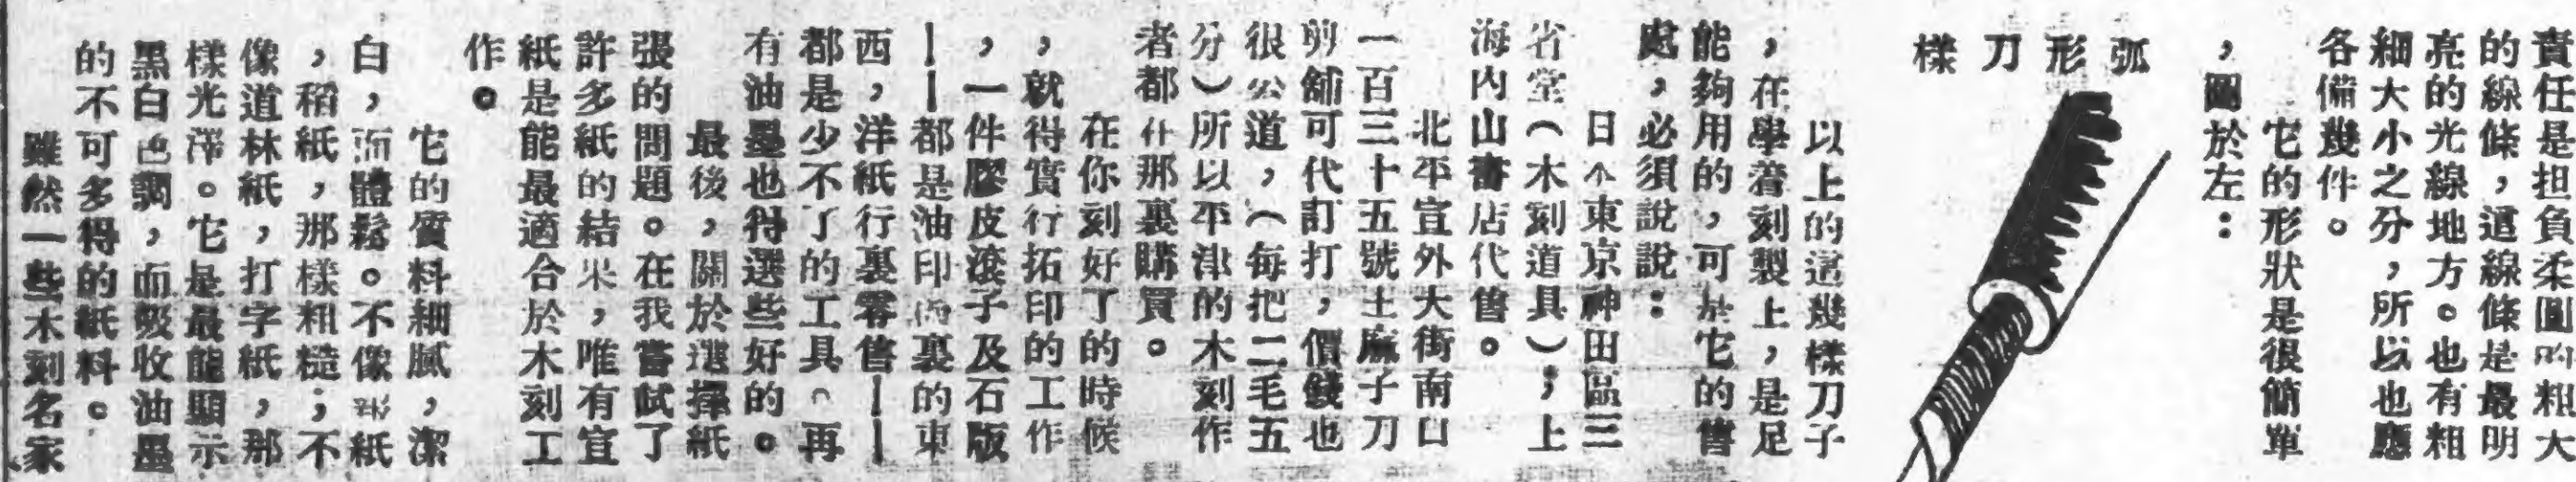 責任是担負柔圓的粗大
的線條，這線條是最明
亮的光線地方。也有粗
細大小之分，所以也應
各備幾件。
它的形狀是很簡單
，圖於左：
弧形刀樣
以上的這幾樣刀子
，在學着刻製上，是足
能夠用的，可是它的售
處，必須說說：
日本東京神田區三
省堂（木刻道具）；上
海內山書店代售。
北平宣外大街南口
一百三十五號王麻子刀
剪舖可代訂打，價錢也
很公道，（每把二毛五
分）所以平津的木刻作
者都在那裏購買。
在你刻好了的時候
，就得實行拓印的工作
，一件膠皮滾子及石版
——都是油印裏的東
西，洋紙行裏零售——
都是少不了的工具。再
有油墨也得選些好的。
最後，關於選擇紙
張的問題。在我嘗試了
許多紙的結果，唯有宣
紙是能最適合於木刻工
作。
它的質料細膩，潔
白，而體鬆。不像報紙
，稻紙，那樣粗糙；不
像道林紙，打字紙，那
樣光澤。它是最能顯示
黑白色調，而吸收油墨
的不可多得的紙料。
雖然一些木刻名家